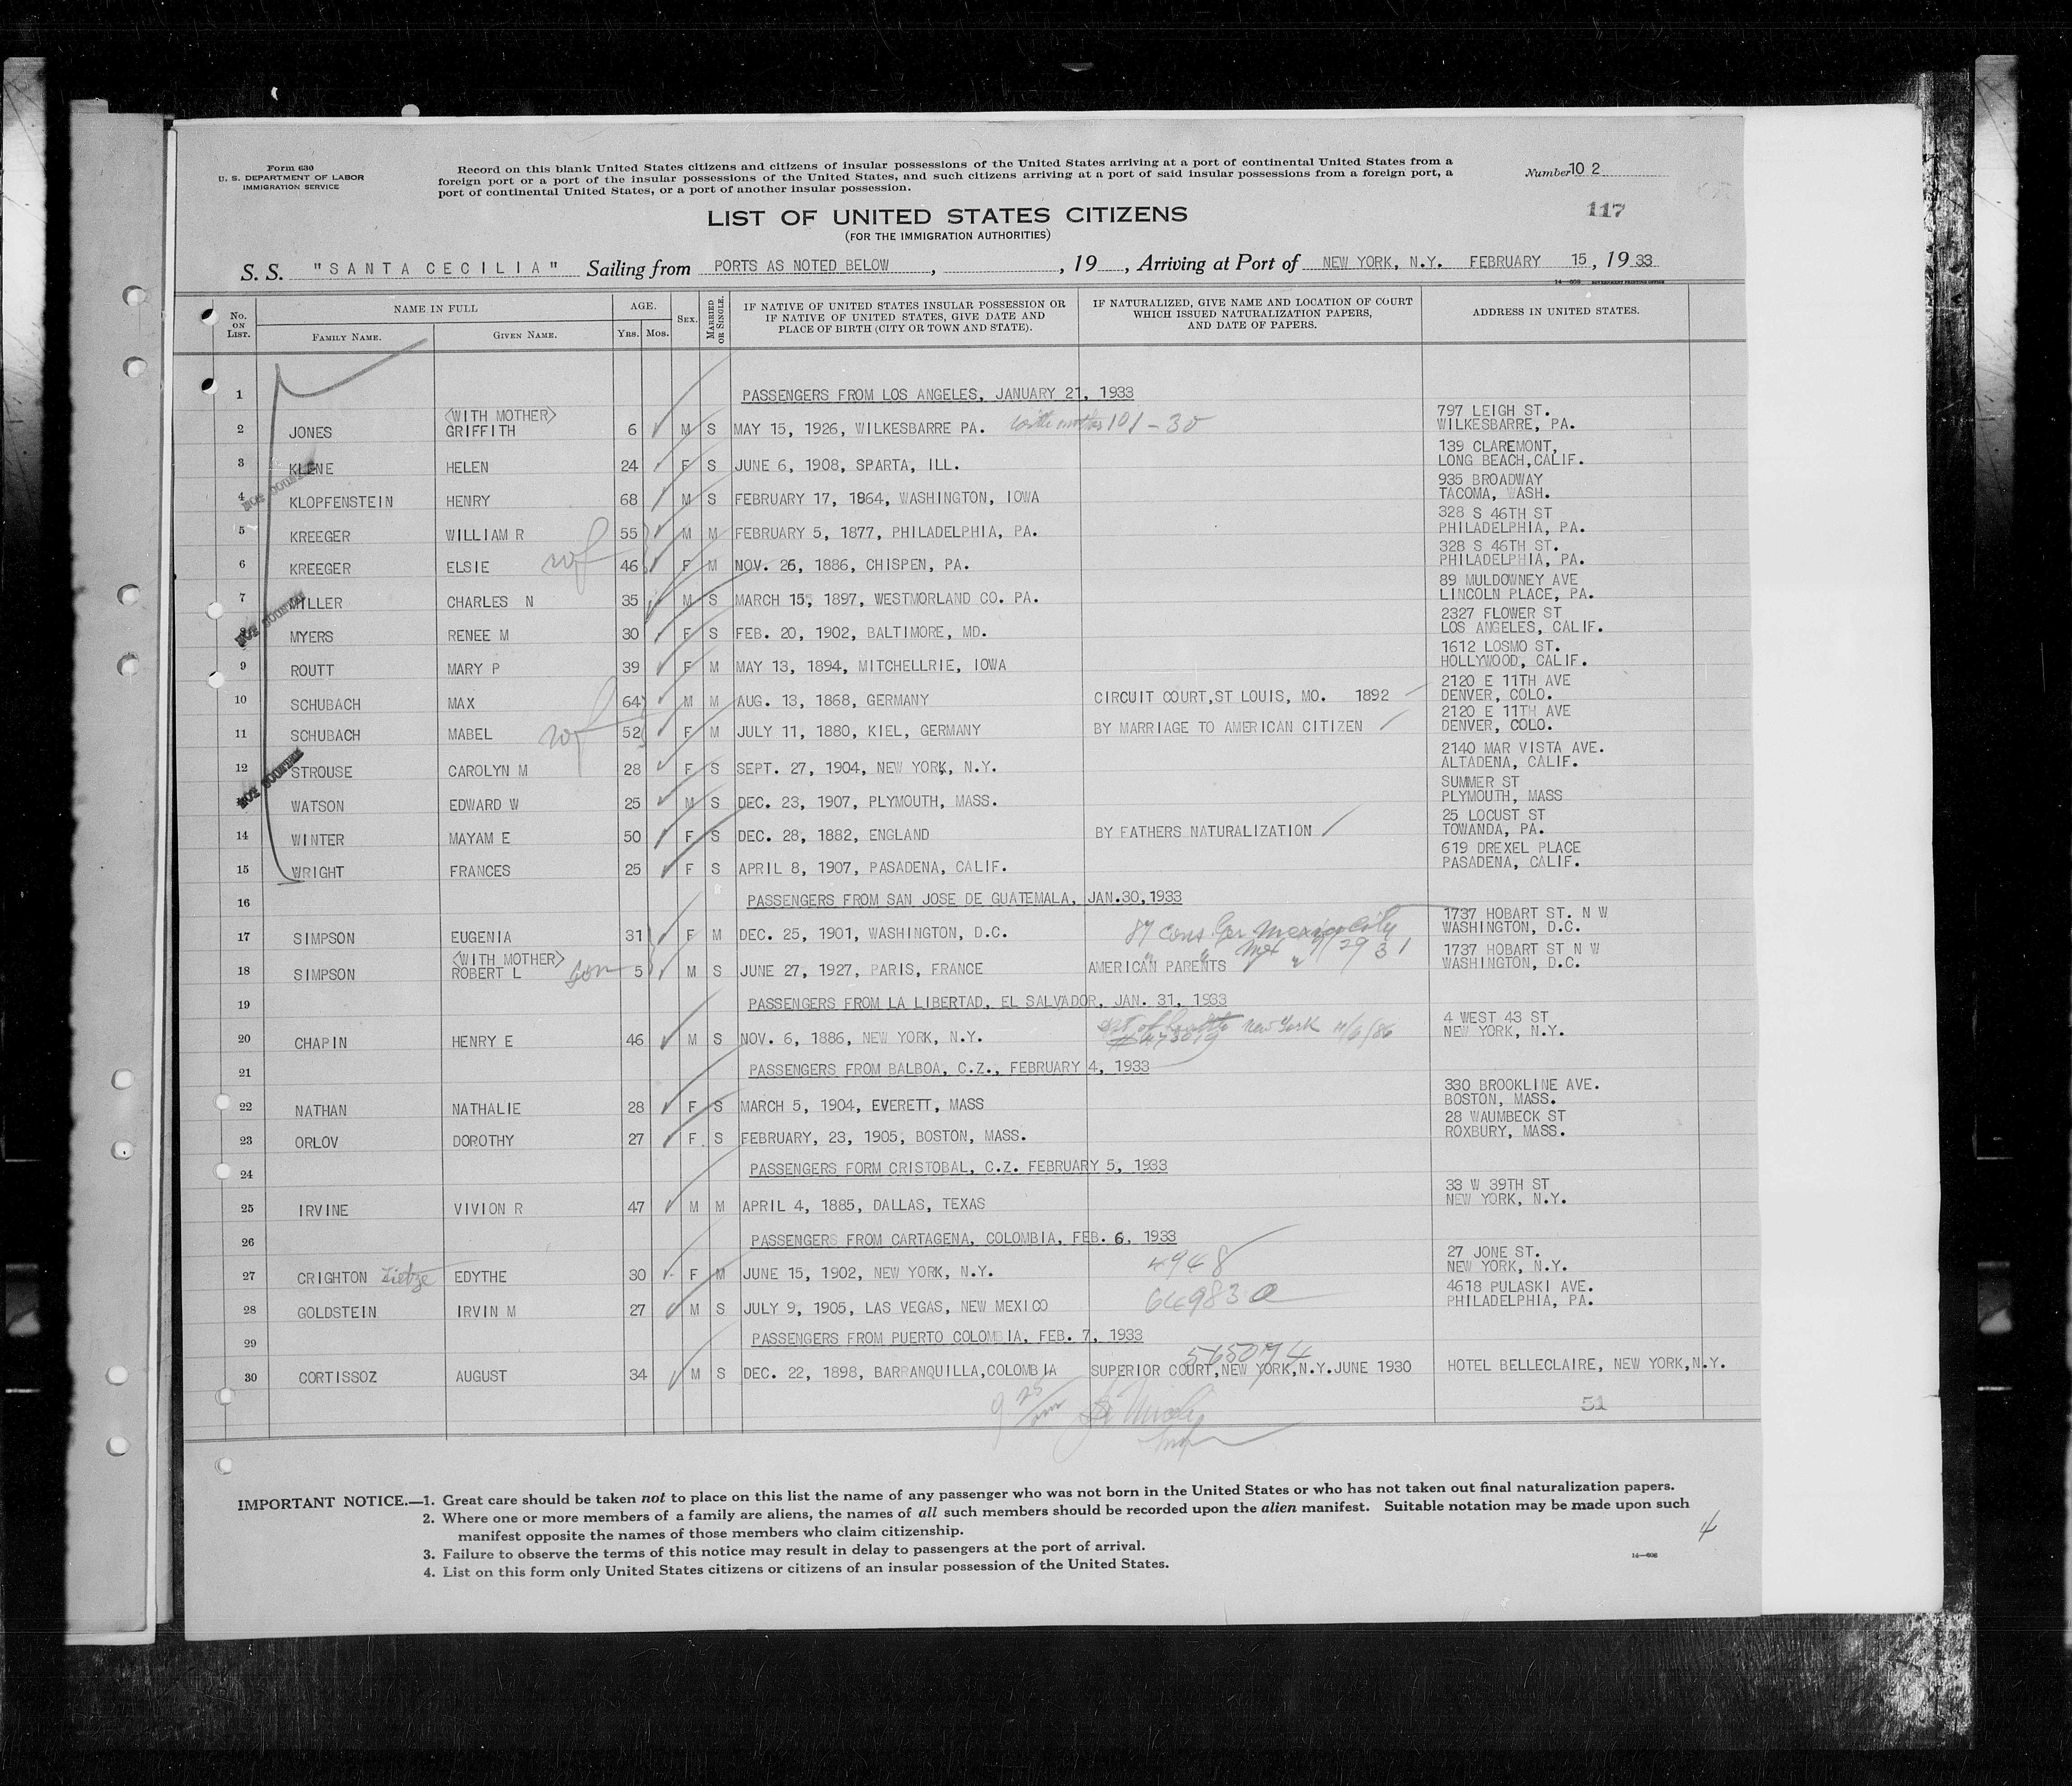 Form 630
U. S. DEPARTMENT OF LABOR
IMMIGRATION SERVICE
Record on this blank United States citizens and citizens of insular possessions of the United States arriving at a port of continental United States from a
foreign port or a port of the insular possessions of the United States, and such citizens arriving at a port of said insular possessions from a foreign port, a
port of continental United States, or a port of another insular possession.
Number 10 2
117
LIST OF UNITED STATES CITIZENS
(FOR THE IMMIGRATION AUTHORITIES)
S. S. "SANTA CECILIA" Sailing from PORTS AS NOTED BELOW , , 19 , Arriving at Port of NEW YORK, N.Y. FEBRUARY 15 , 19 33
14—608 GOVERNMENT PRINTING OFFICE
No. ON LIST. NAME IN FULL FAMILY NAME. GIVEN NAME. AGE. Yrs. Mos. SEX. MARRIED OR SINGLE. IF NATIVE OF UNITED STATES INSULAR POSSESSION OR IF NATIVE OF UNITED STATES, GIVE DATE AND PLACE OF BIRTH (CITY OR TOWN AND STATE). IF NATURALIZED, GIVE NAME AND LOCATION OF COURT WHICH ISSUED NATURALIZATION PAPERS, AND DATE OF PAPERS. ADDRESS IN UNITED STATES.
1 PASSENGERS FROM LOS ANGELES, JANUARY 21, 1933
2 JONES <WITH MOTHER> GRIFFITH 6 M S MAY 15, 1926, WILKESBARRE PA. with mother 101-30 797 LEIGH ST. WILKESBARRE, PA.
3 KLENE HELEN 24 F S JUNE 6, 1908, SPARTA, ILL. 139 CLAREMONT, LONG BEACH,CALIF.
4 KLOPFENSTEIN HENRY 68 M S FEBRUARY 17, 1864, WASHINGTON, IOWA 935 BROADWAY TACOMA, WASH.
5 KREEGER WILLIAM R 55 M M FEBRUARY 5, 1877, PHILADELPHIA, PA. 328 S 46TH ST PHILADELPHIA, PA.
6 KREEGER ELSIE wf 46 F M NOV. 26, 1886, CHISPEN, PA. 328 S 46TH ST. PHILADELPHIA, PA.
7 MILLER CHARLES N 35 M S MARCH 15, 1897, WESTMORLAND CO. PA. 89 MULDOWNEY AVE LINCOLN PLACE, PA.
MYERS RENEE M 30 F S FEB. 20, 1902, BALTIMORE, MD. 2327 FLOWER ST LOS ANGELES, CALIF.
9 ROUTT MARY P 39 F M MAY 13, 1894, MITCHELLRIE, IOWA 1612 LOSMO ST. HOLLYWOOD, CALIF.
10 SCHUBACH MAX 64 M M AUG. 13, 1868, GERMANY CIRCUIT COURT,ST LOUIS, MO. 1892 2120 E 11TH AVE DENVER, COLO.
11 SCHUBACH MABEL wf 52 F M JULY 11, 1880, KIEL, GERMANY BY MARRIAGE TO AMERICAN CITIZEN 2120 E 11TH AVE DENVER, COLO.
12 STROUSE CAROLYN M 28 F S SEPT. 27, 1904, NEW YORK, N.Y. 2140 MAR VISTA AVE. ALTADENA, CALIF.
WATSON EDWARD W 25 M S DEC. 23, 1907, PLYMOUTH, MASS. SUMMER ST PLYMOUTH, MASS
14 WINTER MAYAM E 50 F S DEC. 28, 1882, ENGLAND BY FATHERS NATURALIZATION 25 LOCUST ST TOWANDA, PA.
15 WRIGHT FRANCES 25 F S APRIL 8, 1907, PASADENA, CALIF. 619 DREXEL PLACE PASADENA, CALIF.
16 PASSENGERS FROM SAN JOSE DE GUATEMALA, JAN.30,1933
17 SIMPSON EUGENIA 31 F M DEC. 25, 1901, WASHINGTON, D.C. Cons. Gen Mexico City 1737 HOBART ST. N W WASHINGTON, D.C.
18 SIMPSON <WITH MOTHER> ROBERT L son 5 M S JUNE 27, 1927, PARIS, FRANCE AMERICAN PARENTS 1737 HOBART ST N W WASHINGTON, D.C.
19 PASSENGERS FROM LA LIBERTAD, EL SALVADOR, JAN. 31, 1933
20 CHAPIN HENRY E 46 M S NOV. 6, 1886, NEW YORK, N.Y. New York 11/6/86 #473019 4 WEST 43 ST NEW YORK, N.Y.
21 PASSENGERS FROM BALBOA, C.Z., FEBRUARY 4, 1933
22 NATHAN NATHALIE 28 F S MARCH 5, 1904, EVERETT, MASS 330 BROOKLINE AVE. BOSTON, MASS.
23 ORLOV DOROTHY 27 F. S FEBRUARY, 23, 1905, BOSTON, MASS. 28 WAUMBECK ST ROXBURY, MASS.
24 PASSENGERS FORM CRISTOBAL, C.Z. FEBRUARY 5, 1933
25 IRVINE VIVION R 47 M M APRIL 4, 1885, DALLAS, TEXAS 33 W 39TH ST NEW YORK, N.Y.
26 PASSENGERS FROM CARTAGENA, COLOMBIA, FEB. 6, 1933
27 CRIGHTON Zietze EDYTHE 30 F M JUNE 15, 1902, NEW YORK, N.Y. 4948 27 JONE ST. NEW YORK, N.Y.
28 GOLDSTEIN IRVIN M 27 M S JULY 9, 1905, LAS VEGAS, NEW MEXICO 649830 4618 PULASKI AVE. PHILADELPHIA, PA.
29 PASSENGERS FROM PUERTO COLOMBIA, FEB. 7, 1933
30 CORTISSOZ AUGUST 34 M S DEC. 22, 1898, BARRANQUILLA,COLOMBIA 565074 SUPERIOR COURT,NEW YORK,N.Y.JUNE 1930 HOTEL BELLECLAIRE, NEW YORK,N.Y.
51
IMPORTANT NOTICE.—1. Great care should be taken not to place on this list the name of any passenger who was not born in the United States or who has not taken out final naturalization papers.
2. Where one or more members of a family are aliens, the names of all such members should be recorded upon the alien manifest. Suitable notation may be made upon such
manifest opposite the names of those members who claim citizenship.
3. Failure to observe the terms of this notice may result in delay to passengers at the port of arrival.
4. List on this form only United States citizens or citizens of an insular possession of the United States.
14—608
4